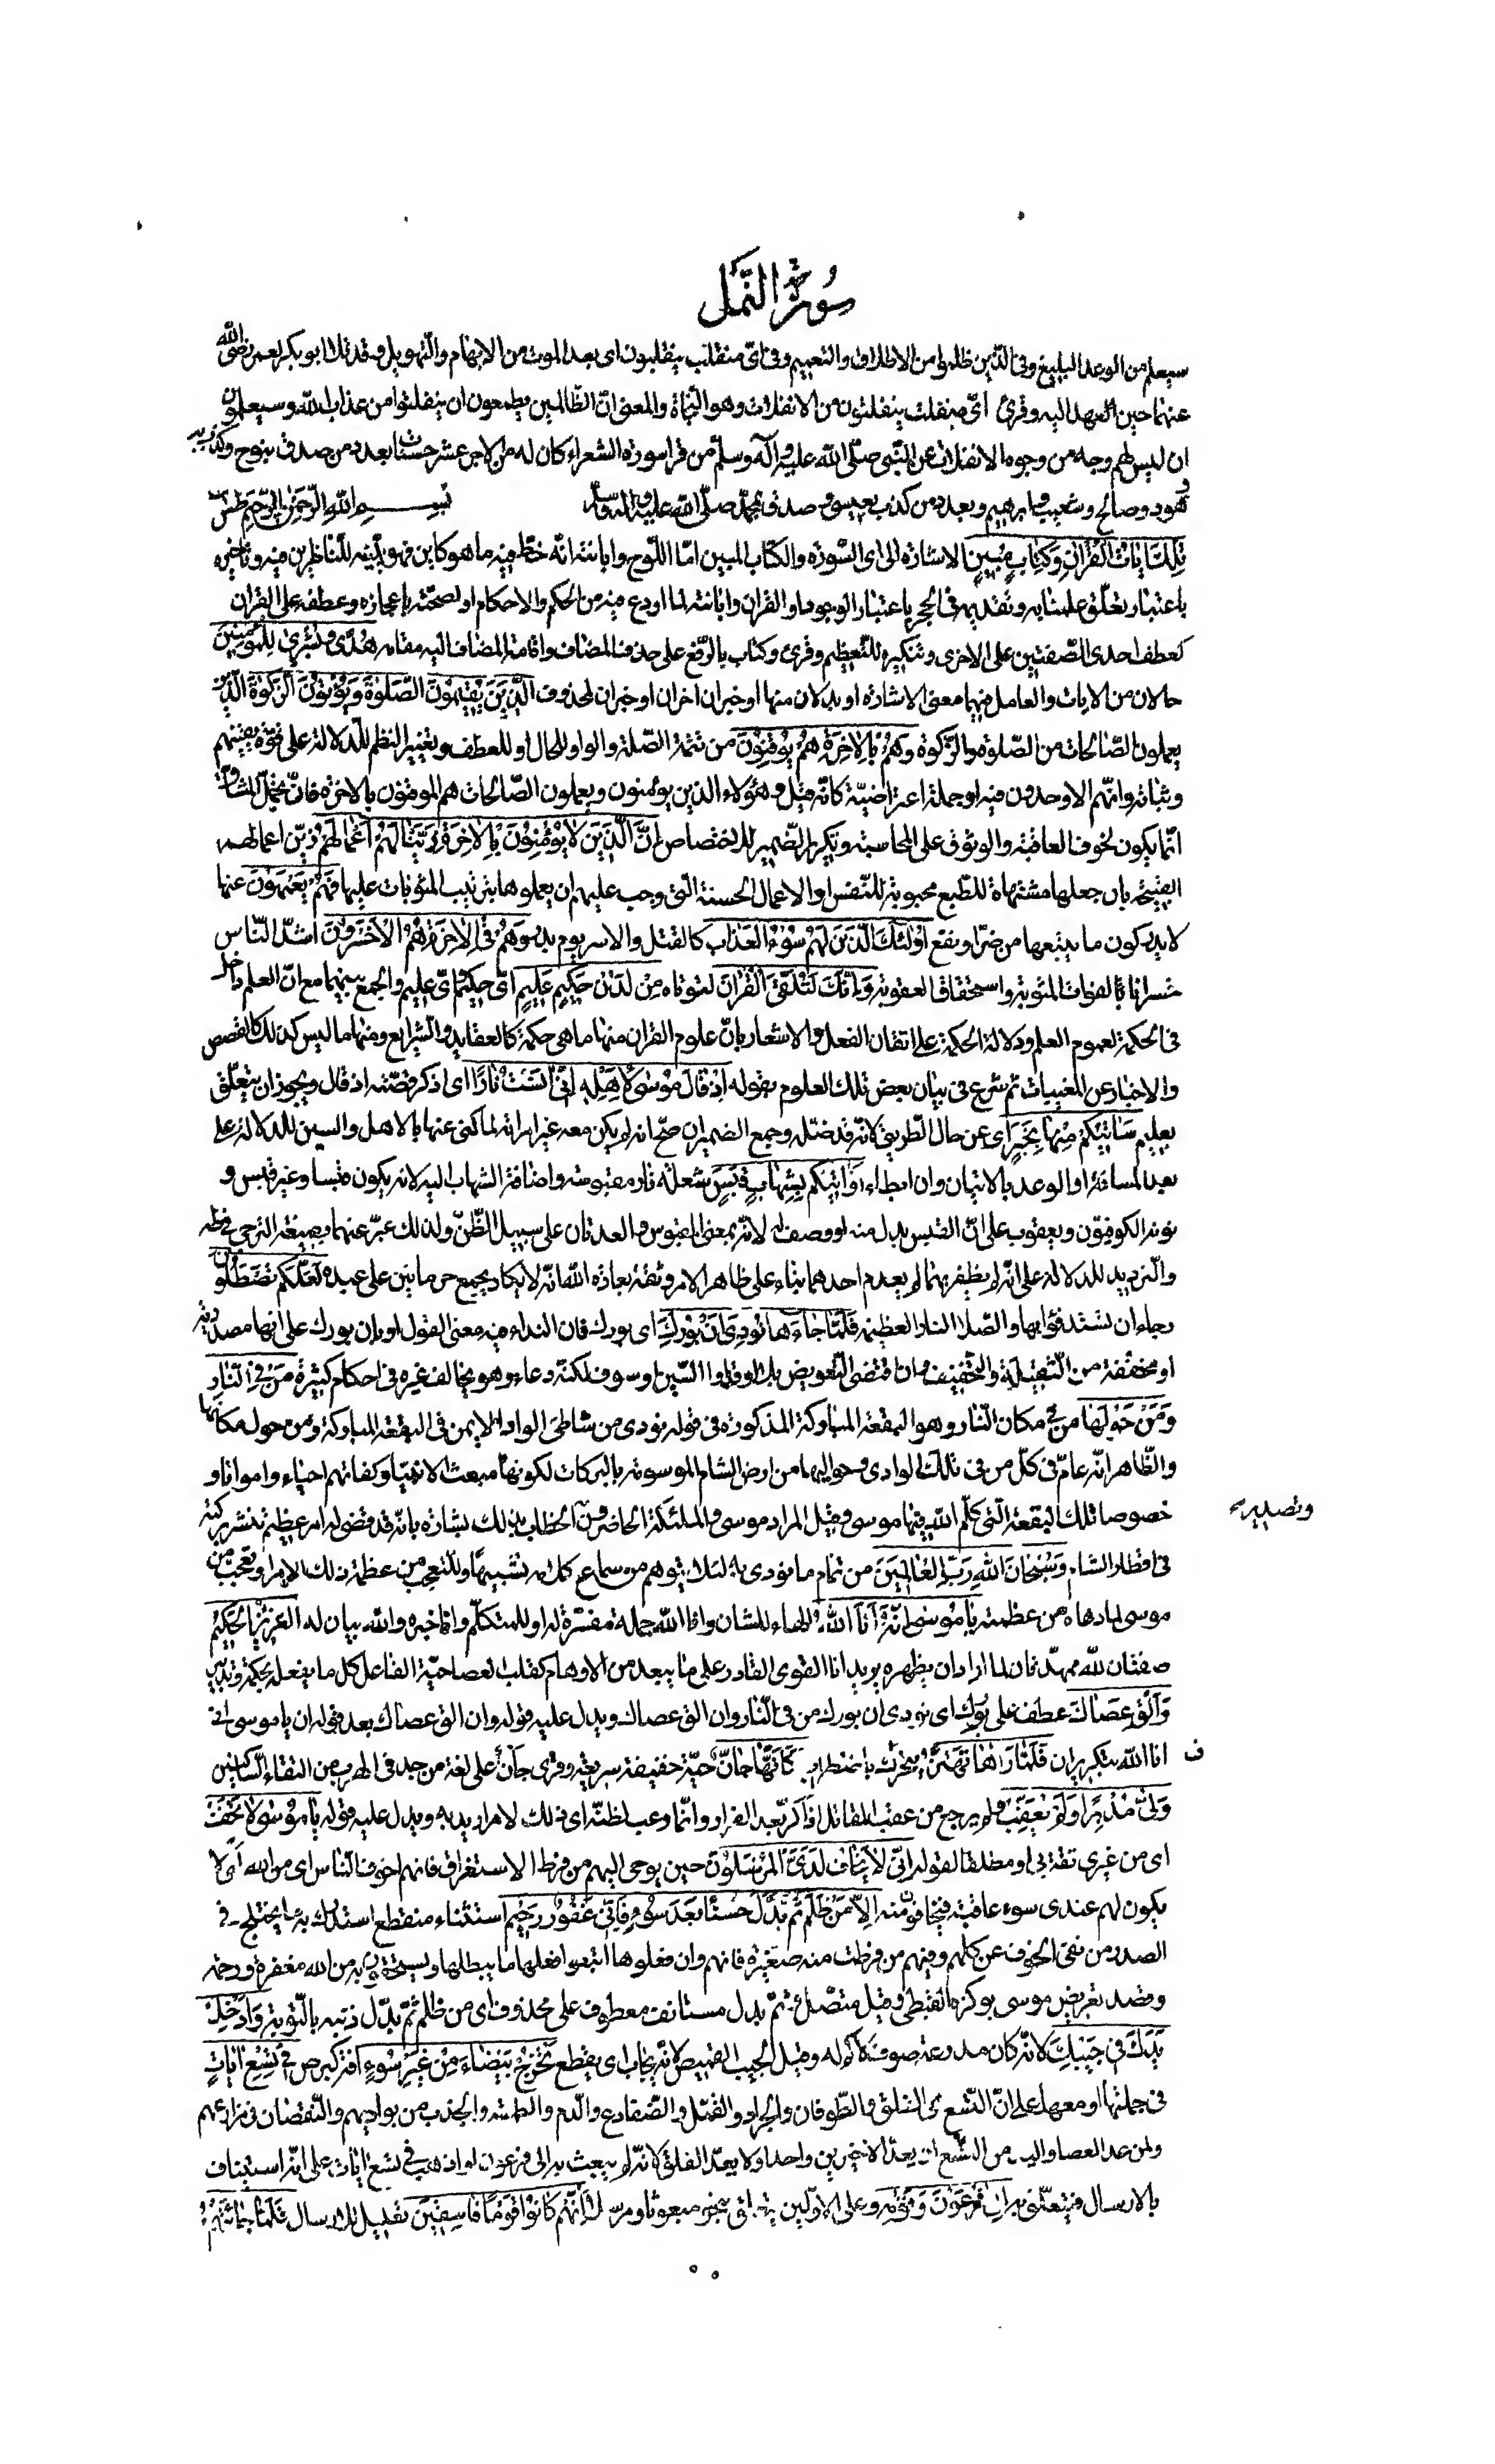 سورة النمل
سيعلم من الوعد البليغ وفي الذين ظلموا من الاطلاق والتعميم وفي اىّ منقلب ينقلبون اى بعد الموت من الابهام والتهويل وقد تلا ابو بكر لعمر رضى الله
عنهما حين عهد اليه وقرئ اىّ منفلت ينفلتون من الانفلات وهو النجاة والمعنى انّ الظالمين يطمعون ان ينفلتوا من عذاب الله وسيعلمون
ان ليس لهم وجه من وجوه الانفلات عن النبى صلّى الله عليه وآله وسلّم من قرا سورة الشعراء كان له من الاجر عشر حسنات بعدد من صدق بنوح وكذب به
وهود وصالح وشعيب وابرهيم وبعدد من كذب بعيسى وصدق بمحمّد صلّى الله عليه وآله وسلم بسم الله الرّحمن الرّحيم طس
تِلْكَ اٰيَاتُ الْقُرْاٰنِ وَكِتَابٍ مُبِينٍ الاشارة الى اى السّورة والكتاب المبين امّا اللّوح وابانته انّه خطّ فيه ما هو كاين فهو يبيّنه للنّاظرين فيه وتاخيره
باعتبار تعلّق علمنا به وتقديمه فى الحجر باعتبار الوجود او القران وابانته لما اودع فيه من الحكم والاحكام او لصحّته باعجازه وعطفه على القران
كعطف احدى الصّفتين على الاخرى وتنكيره للتّعظيم وقرئ وكتاب بالرّفع على حذف المضاف واقامة المضاف اليه مقامه هُدًى وَبُشْرٰى لِلْمُؤْمِنِينَ
حالان من الايات والعامل فيهما معنى الاشارة او بدلان منها او خبران اخران او خبران لمحذوف الَّذِينَ يُقِيمُونَ الصَّلٰوةَ وَيُؤْتُونَ الزَّكٰوةَ الّذين
يعملون الصّالحات من الصّلوة والزّكوة وَهُمْ بِالْاٰخِرَةِ هُمْ يُوقِنُونَ من تتمة الصّلة والواو للحال او للعطف وتغيير النظم للدّلالة على قوّة يقينهم
وثباته وانّهم الاوحدون فيه او جملة اعتراضيّة كانّه قيل وهؤلاء الذين يؤمنون ويعملون الصّالحات هم الموقنون بالاخرة فانّ تحمّل المشاق
انّما يكون لخوف العاقبة والوثوق على المحاسبة وتكرير الضّمير للاختصاص إِنَّ الَّذِينَ لَا يُؤْمِنُونَ بِالْاٰخِرَةِ زَيَّنَّا لَهُمْ أَعْمَالَهُمْ زيّن اعمالهم
القبيحة بان جعلها مشتهاة للطّبع محبوبة للنّفس او الاعمال الحسنة الّتى وجب عليهم ان يعملوها بترتيب المثوبات عليها فَهُمْ يَعْمَهُونَ عنها
لا يدركون ما يتبعها من ضرّ او نفع أُولٰئِكَ الَّذِينَ لَهُمْ سُوءُ الْعَذَابِ كالقتل والاسر يوم بدر وَهُمْ فِى الْاٰخِرَةِ هُمُ الْأَخْسَرُونَ اشدّ النّاس
خسرانا لفوات المثوبة واستحقاق العقوبة وَإِنَّكَ لَتُلَقَّى الْقُرْاٰنَ لتؤتاه مِنْ لَدُنْ حَكِيمٍ عَلِيمٍ اىّ حكيم واىّ عليم والجمع بينهما مع انّ العلم داخل
فى الحكمة لعموم العلم ودلالة الحكمة على اتقان الفعل والاشعار بانّ علوم القران منها ما هى حكمة كالعقايد والشّرايع ومنها ما ليس كذلك كالقصص
والاخبار عن المغيبات ثم شرع فى بيان بعض تلك العلوم بقوله إِذْ قَالَ مُوسٰى لِأَهْلِهِ إِنِّى اٰنَسْتُ نَارًا اى اذكر قصّته اذ قال ويجوز ان يتعلّق
بعليم سَاٰتِيكُمْ مِنْهَا بِخَبَرٍ اى عن حال الطّريق لانّه قد ضلّه وجمع الضمير ان صحّ انه لم يكن معه غير امراته لما كنى عنها بالاهل والسين للدلالة على
بعد المسافة او الوعد بالاتيان وان ابطاء أَوْ اٰتِيكُمْ بِشِهَابٍ قَبَسٍ شعلة نار مقبوسة واضافة الشهاب اليه لانه يكون قبسا وغير قبس و
نونه الكوفيّون ويعقوب على انّ القبس بدل منه او وصف له لانّه بمعنى المقبوس والعدتان على سبيل الظّنّ ولذلك عبّر عنهما بصيغة الترجى فى طه
والّترديد للدلالة على انّه ان لم يظفر بهما لم يعدم احدهما بناء على ظاهر الامر وثقة بعادة الله انّه لا يكاد يجمع حرمانين على عبده لَعَلَّكُمْ تَصْطَلُونَ
رجاء ان تستدفئوا بها والصّلا النار العظيمة فَلَمَّا جَاءَهَا نُودِىَ أَنْ بُورِكَ اى بورك فان النداء فيه معنى القول او بان بورك على انها مصدريّة
او مخفّفة من الثّقيلة والتّخفيف وان اقتضى التّعويض بلا او قد او السّين او سوف لكنّه دعاء وهو يخالف غيره فى احكام كثيرة مَنْ فِى النَّارِ
وَمَنْ حَوْلَهَا من فى مكان النّار وهو البقعة المباركة المذكورة فى قوله نودى من شاطئ الواد الايمن فى البقعة المباركة ومن حول مكانها
والظّاهر انّه عامّ فى كلّ من فى تلك الوادى وحواليها من ارض الشام الموسومة بالبركات لكونها مبعث الانبيا وكفاتهم احياء وامواتا و
خصوصا تلك البقعة الّتى كلّم الله فيها موسى وقيل المراد موسى والملئكة الحاضرون وتصدير الخطاب بذلك بشارة بانّه قد قضى له امر عظيم تنتشر بركته
فى اقطار الشام وَسُبْحَانَ اللهِ رَبِّ الْعَالَمِينَ من تمام ما نودى به لئلا يتوهم من سماع كلامه تشبيها وللتعجب من عظمة ذلك الامر او تعجّب من
موسى لما دهاه من عظمته يَا مُوسٰى إِنَّهُ أَنَا اللهُ الهاء للشان وانا الله جملة مفسّرة له او للمتكلّم وانا خبره والله بيان له الْعَزِيزُ الْحَكِيمُ
صفتان لله ممهّدتان لما اراد ان يظهره يريد انا القوى القادر على ما يبعد من الاوهام كقلب العصا حيّة الفاعل كلّ ما يفعله بحكمة وتدبير
وَأَلْقِ عَصَاكَ عطف على بورك اى نودى ان بورك من فى النّار وان الق عصاك ويدلّ عليه قوله وان الق عصاك بعد قوله ان يا موسى انى
انا الله بتكرير ان فَلَمَّا رَاٰهَا تَهْتَزُّ يتحرّك باضطراب كَأَنَّهَا جَانٌّ حيّة خفيفة سريعة وقرئ جأنّ على لغة من جدّ فى الهرب من التقاء السّاكنين
وَلّٰى مُدْبِرًا وَلَمْ يُعَقِّبْ ولم يرجع من عقب المقاتل اذا كرّ بعد الفرار وانّما رعب لظنّه اى ذلك لامر اريد به ويدل عليه قوله يَا مُوسٰى لَا تَخَفْ
اى من غيرى ثقة بى او مطلقا لقوله إِنِّى لَا يَخَافُ لَدَىَّ الْمُرْسَلُونَ حين يوحى اليهم من فرط الاستغراق فانهم اخوف النّاس اى من الله او لا
يكون لهم عندى سوء عاقبة فيخافون منه إِلَّا مَنْ ظَلَمَ ثُمَّ بَدَّلَ حُسْنًا بَعْدَ سُوءٍ فَإِنِّى غَفُورٌ رَحِيمٌ استثناء منقطع استدرك به ما يختلج فى
الصدر من نفى الخوف عن كلّهم وفيهم من فرطت منه صغيرة فانهم وان فعلوها اتبعوا فعلها ما يبطلها ويستحقون به من الله مغفرة ورحمة
وقصد تعريض موسى بوكزه القبطى وقيل متصل وثمّ بدل مستانف معطوف على محذوف اى من ظلم ثمّ بدّل ذنبه بالتّوبة وَأَدْخِلْ
يَدَكَ فِى جَيْبِكَ لانّه كان مدرعة صوف لا كمّ له وقيل الجيب القميص لانّه يجاب اى يقطع تَخْرُجْ بَيْضَاءَ مِنْ غَيْرِ سُوءٍ افة كبرص فِى تِسْعِ اٰيَاتٍ
فى جملتها او معها على انّ التّسع هى الفلق والطّوفان والجراد والقمّل والضّفادع والدّم والطمسة والجدب من بواديهم والنّقصان فى مزارعهم
ولمن عد العصا واليد من التّسع ان يعدّ الاخيرين واحدا ولا يعدّ الفلق لانّه لم يبعث به الى فرعون او اذهب فى تسع ايات على انّه استيناف
بالارسال فيتعلّق به إِلٰى فِرْعَوْنَ وَقَوْمِهِ وعلى الاوّلين يتعلق بنحو مبعوثا او مرسلا إِنَّهُمْ كَانُوا قَوْمًا فَاسِقِينَ تعليل للارسال فَلَمَّا جَاءَتْهُمْ